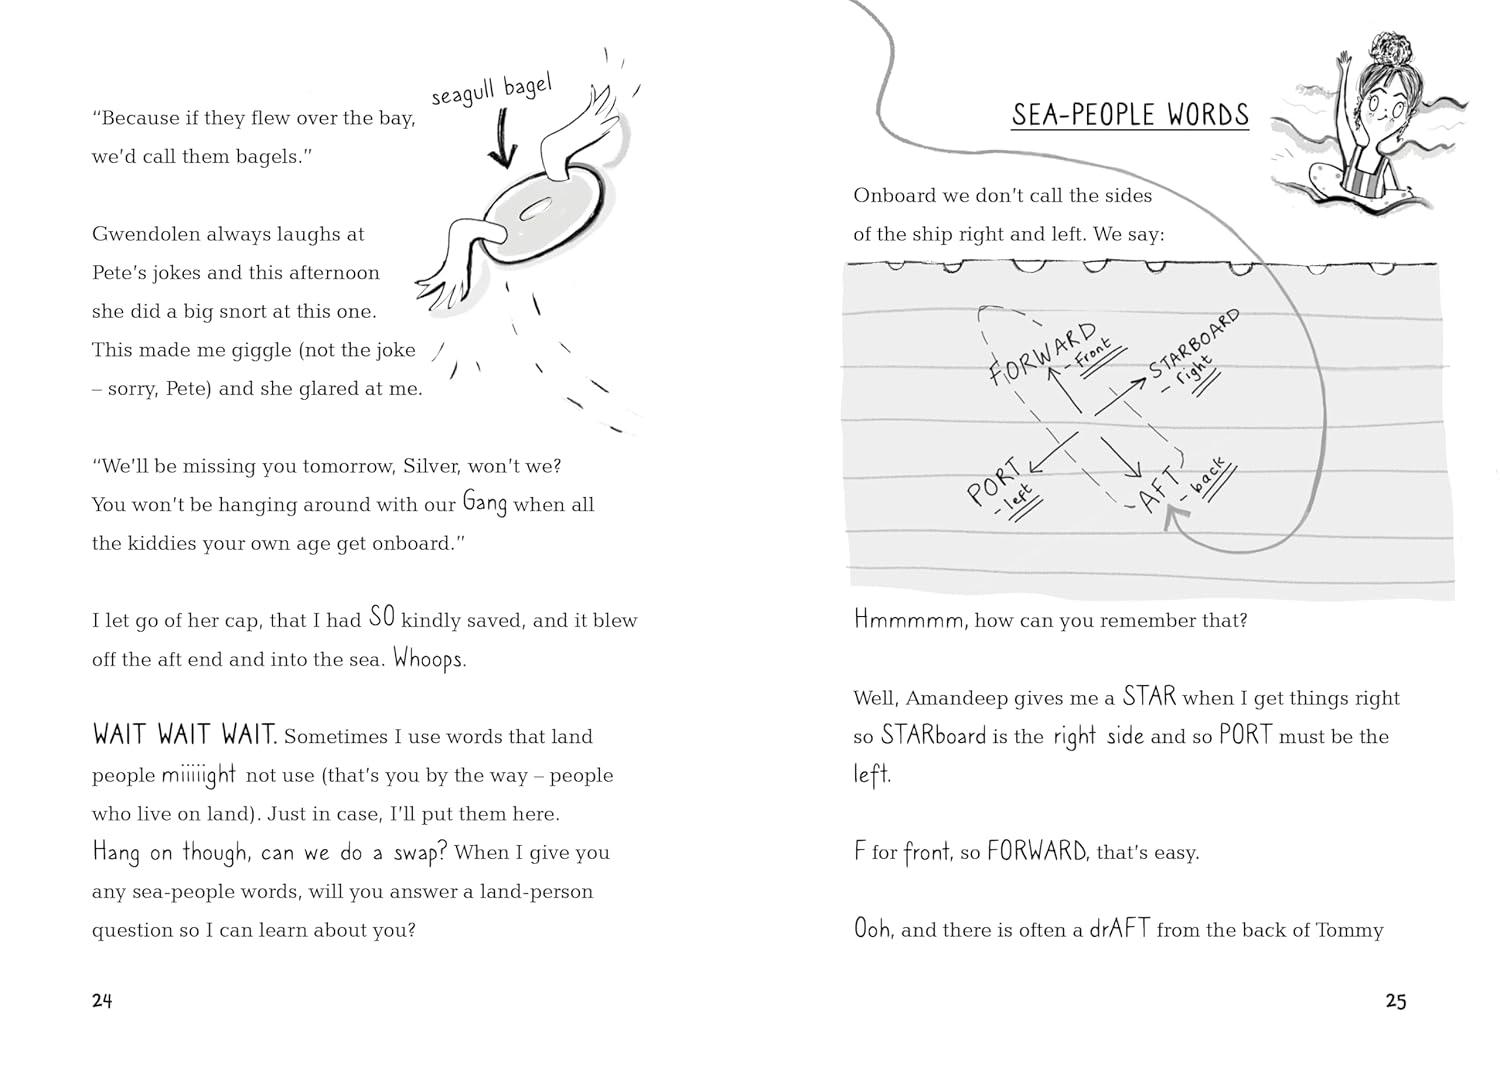 seagull bagel
“Because if they flew over the bay,
we’d call them bagels.”
Gwendolen always laughs at
Pete’s jokes and this afternoon
she did a big snort at this one.
This made me giggle (not the joke
– sorry, Pete) and she glared at me.
“We’ll be missing you tomorrow, Silver, won’t we?
You won’t be hanging around with our Gang when all
the kiddies your own age get onboard.”
I let go of her cap, that I had SO kindly saved, and it blew
off the aft end and into the sea. Whoops.
WAIT WAIT WAIT. Sometimes I use words that land
people miiiiight not use (that’s you by the way – people
who live on land). Just in case, I’ll put them here.
Hang on though, can we do a swap? When I give you
any sea-people words, will you answer a land-person
question so I can learn about you?
24
SEA-PEOPLE WORDS
Onboard we don’t call the sides
of the ship right and left. We say:
FORWARD
- Front
STARBOARD
- right
PORT
- left
AFT
- back
Hmmmmm, how can you remember that?
Well, Amandeep gives me a STAR when I get things right
so STARboard is the right side and so PORT must be the
left.
F for front, so FORWARD, that’s easy.
Ooh, and there is often a drAFT from the back of Tommy
25